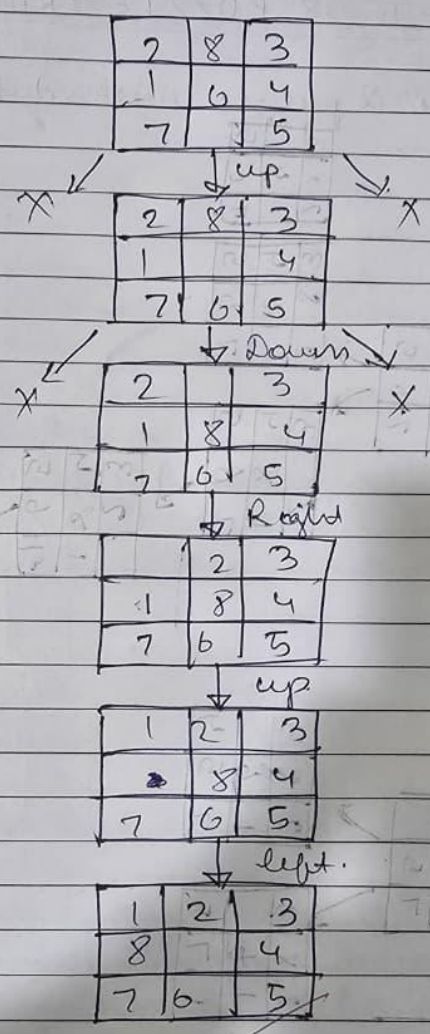 2 8 3
1 6 4
7 5
X up X
2 8 3
1 4
7 6 5
X Down X
2 3
1 8 4
7 6 5
Right
2 3
1 8 4
7 6 5
up
1 2 3
8 4
7 6 5
left.
1 2 3
8 4
7 6 5